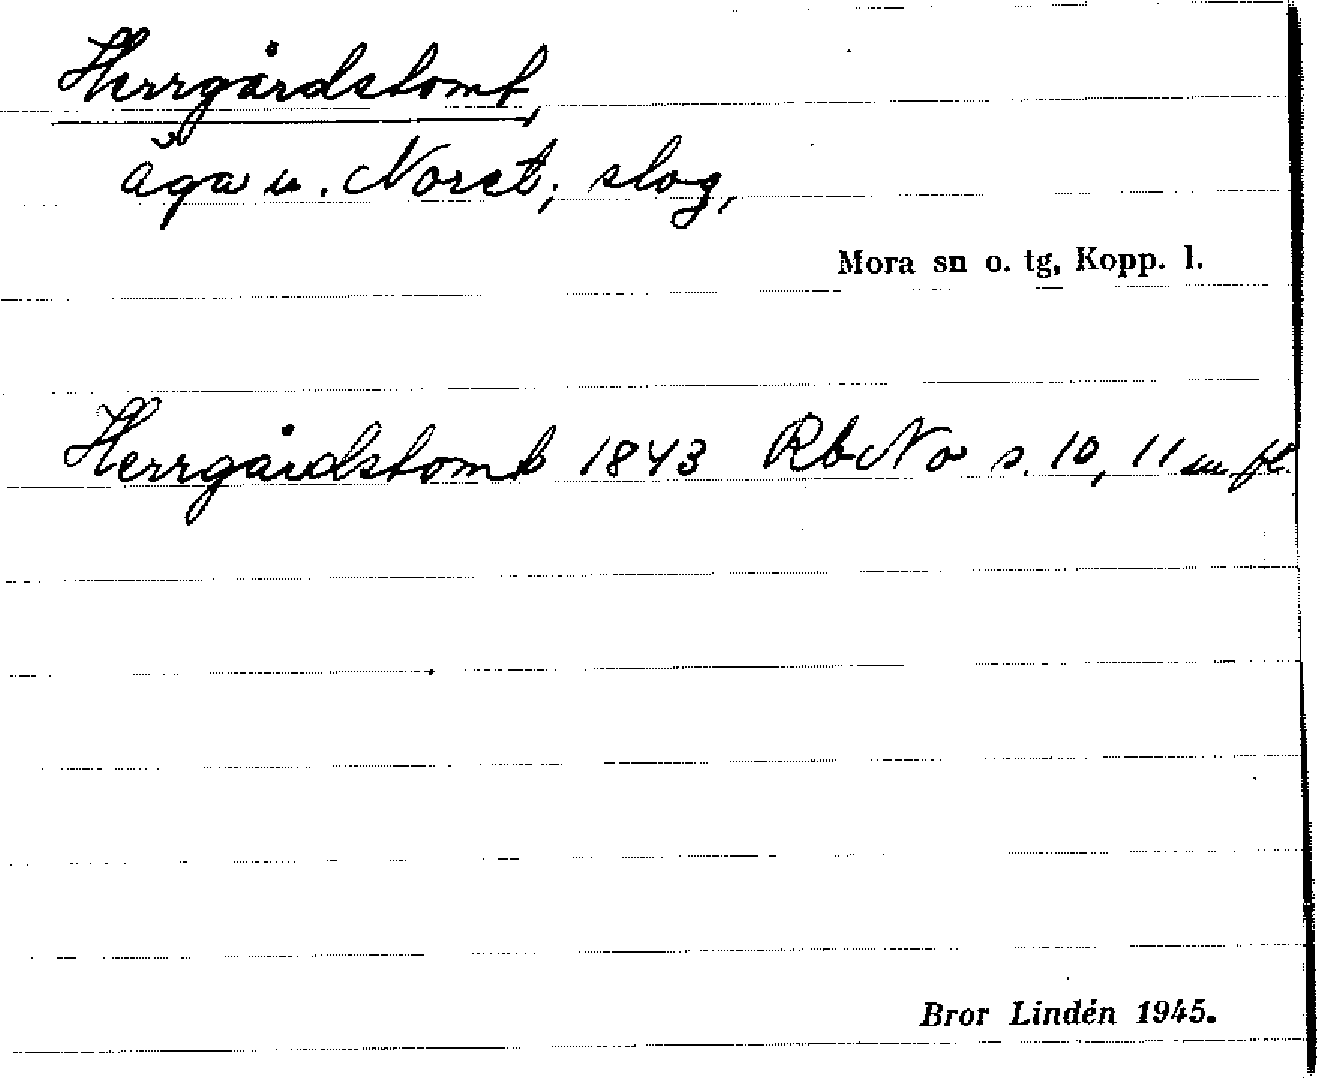 Herrgårdstomt,
äga u. Noret, slog,
Mora sn o. tg, Kopp. l.
Herrgårdstomt 1843 Rb No s. 10, 11 m. fl.
Bror Lindén 1945.